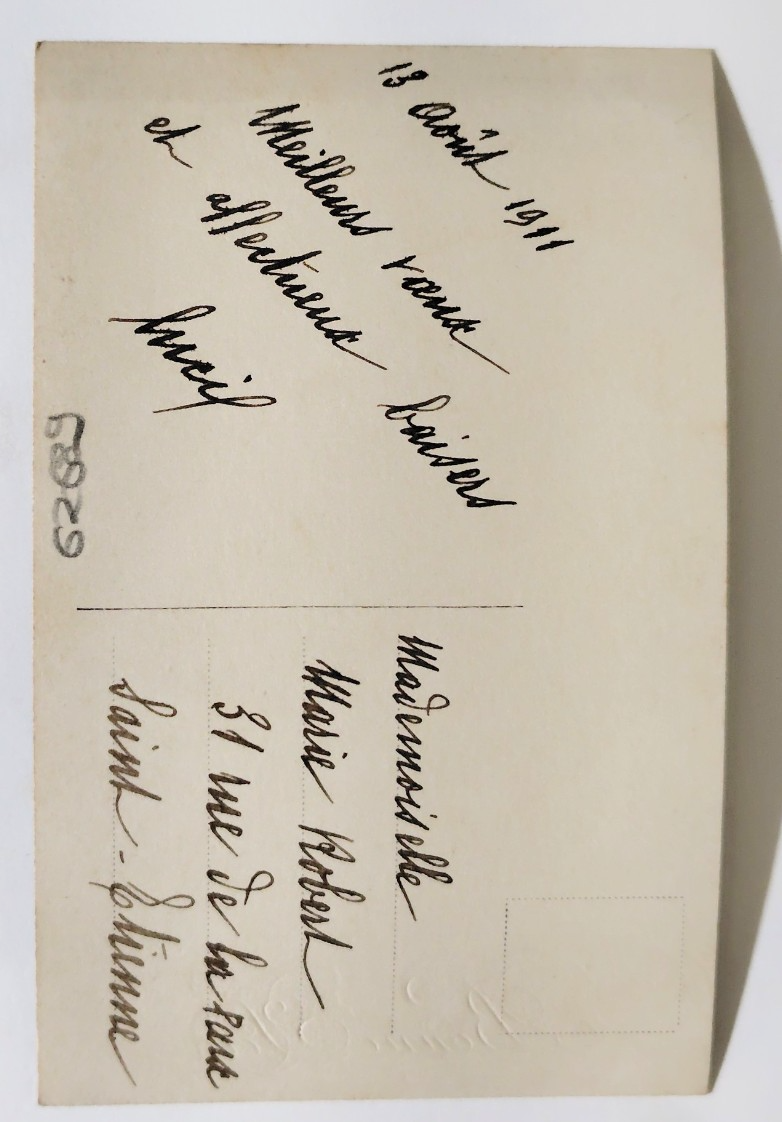 13 Août 1911
Meilleurs vœux
et affectueux baisers
Mademoiselle
Marie Robert
31 rue de la Paix
Saint-Étienne